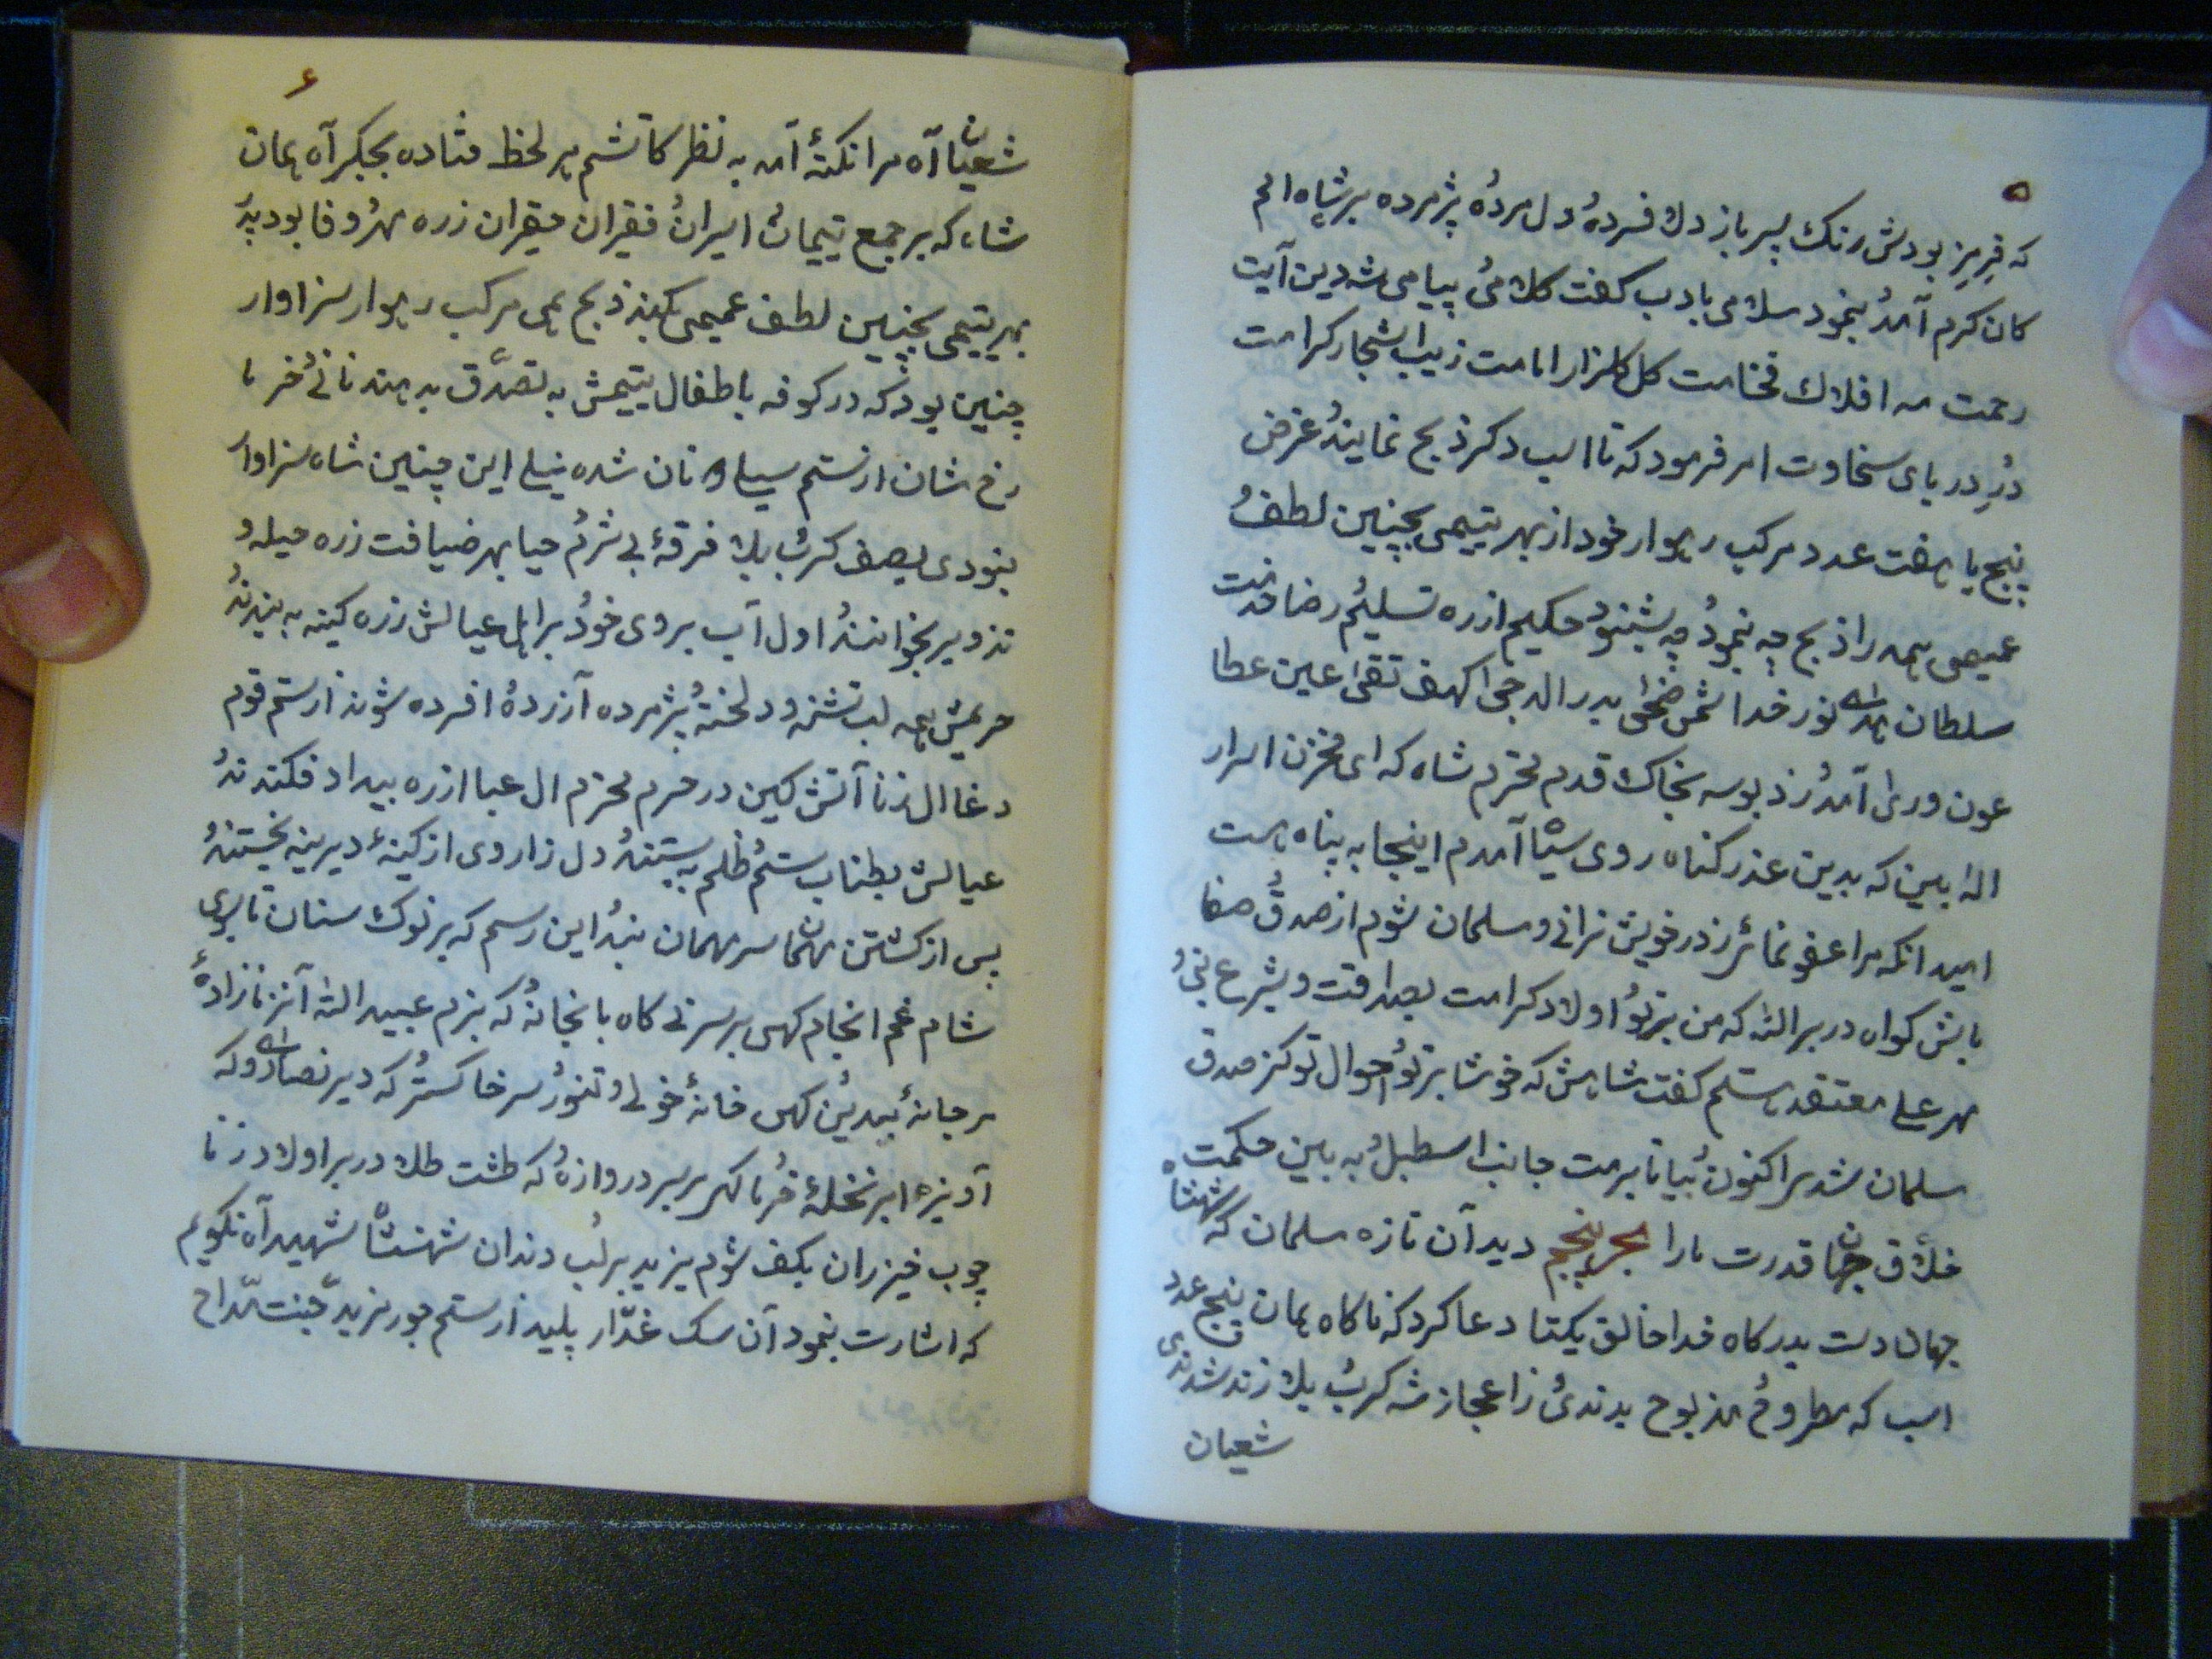 ۵
که فریز بودش رنک پسر باز دلا فسرده دل مرده پژمرده بر شاه الم
کان کرم آمد بنمود سلامی بادب کفت کلامی پیامی شه دین آیت
رحمت مه افلاک فخامت کل کلزار امامت زیب اشجار کرامت
در دریای سخاوت امر فرمود که تا اسب دکر ذبح نمایند غرض
پنج یا هفت عدد مرکب رهوار خود از بهر یتیمی بچنین لطف
عمیمی همه را ذبح چه بنمود چه بشنود حکیم از ره تسلیم رضا خدمت
سلطان هدای نور خدا شمس ضحی بدر الدجی کهف تقی عین عطا
عون وری آمد زد بوسه بخاک قدم محترم شاه که ای مخزن اسرار
اله بین که بدین عذر کناه روی سیا آمدم اینجا به پناهت
امید انکه مرا عفو نمائی ز در خویش نرانی و مسلمان شوم از صدق صفا
باش کواه در بر الله که من بر تو اولاد کرامت بصداقت و بشرع نبی
مهر علی معتقد هستم کفت شاهش که خوشا بر تو احوال تو کز صدق
مسلمان شدی اکنون بیا تا برمت جانب اسطبل به بین حکمت
خلاق جهان قدرت ما را بحر پنجم دید آن تازه مسلمان که شهنشاه
جهان دست بدرکاه خدا خالق یکتا دعا کرد که ناکاه همان پنج عدد
اسب که مطروح مذبوح بدندی ز اعجاز شه کرب بلا زنده شدندی
شعیان
۶
شعیان آه مرا نکتهٔ آمد به نظر کاتشم هر لحظ فتاده بجکر آه همان
شاه که بر جمع یتیمان اسیران فقیران حقیران ز ره مهر وفا بود پدر
بهر یتیمی بچنین لطف عمیمی بکند ذبح همی مرکب رهوار سزاوار
چنین بود که در کوفه باطفال یتیمش به تصدّق بدهند نانی خرما
رخ شان از ستم سیلی نان شده نیلی این چنین شاه سزاوار
نبودی بصف کرب بلا فرقهٔ بی شرم حیا بهر ضیافت ز ره حیله و
تزویر بخوانند اول آب بروی خود بر اهل عیالش ز ره کینه به بندند
حریمش همه لب تشنه و دلخسته پژمرده آزرده افسرده شوند از ستم قوم
دغا ال زنا آتش کین در حرم محترم ال عبا از ره بیداد فکندند
عیالش بطناب ستم ظلم به بستند دل زار وی از کینهٔ دیرینه بخستند
پس از کشتن مهمان سر مهمان نبد این رسم که بر نوک سنان تا بری
شام غم انجام کهی بر سر نی کاه بانخانه که بزم عبید الله آن زنازادهٔ
مرجانهٔ بیدین کهی خانهٔ خولی و تنور سر خاکستر که دیر نصارای و که
آویزه ابر نخلهٔ خرما کهی بر سر دروازه که طشت طلا در بر اولاد زنا
چوب خیزران بکف شوم یزید بر لب دندان شهنشا شهید آه نکویم
که اشارت بنمود آن سک غدّار پلید از ستم جور مزید جنت مدّاح